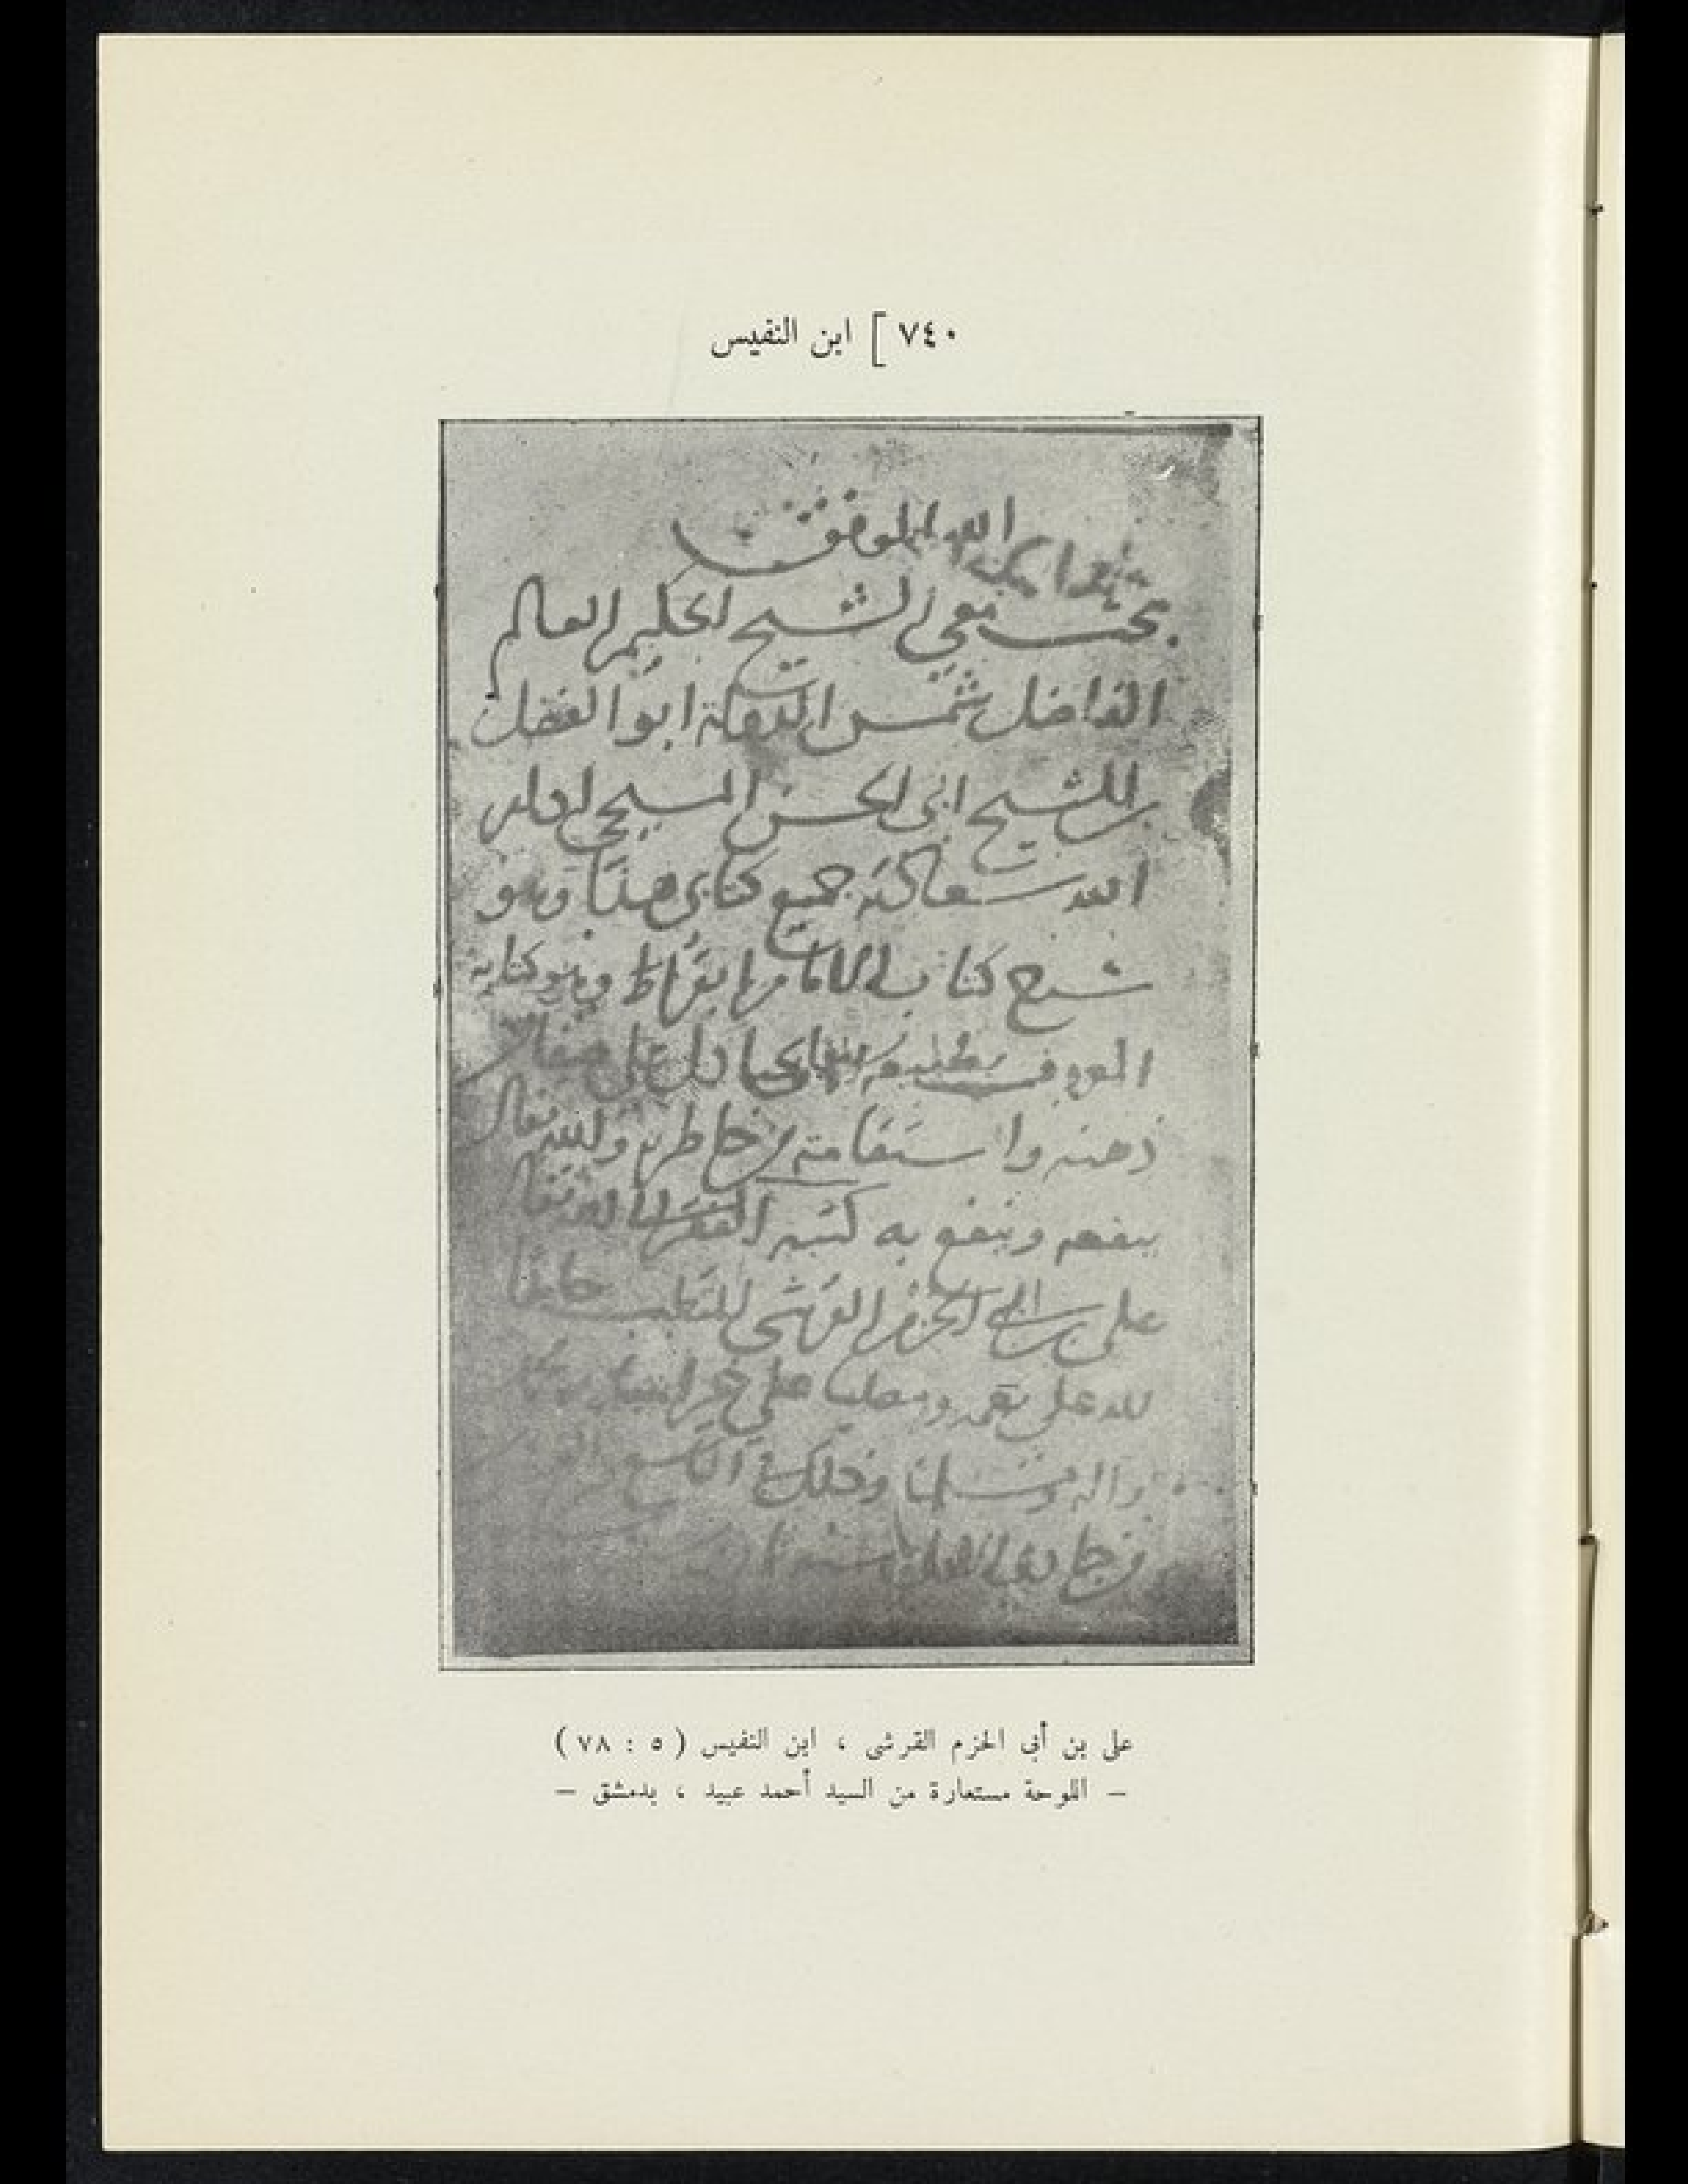 ٧٤٠ ] ابن النفيس
الله الموفق
الشيخ الحكيم العالم
الفاضل شمس الدولة ابو الفضل
بن الشيخ ابى الحسن المسيحى ادام
الله سعادته جميع كتابى هذا وهو
شرح كتاب الامام ابقراط وهو كتابه
المعروف
ذهنه واستقامة خاطره والله تعالى
ينفعه وينفع به كتبه الفقير الى الله تعالى
على بن ابى الحزم القرشى المتطبب حامدا
لله على نعمه ومصليا على خير انبيائه
واله ومسلما وذلك فى التاسع
على بن أبى الحزم القرشى ، ابن النفيس ( ٥ : ٧٨ )
— اللوحة مستعارة من السيد أحمد عبيد ، بدمشق —